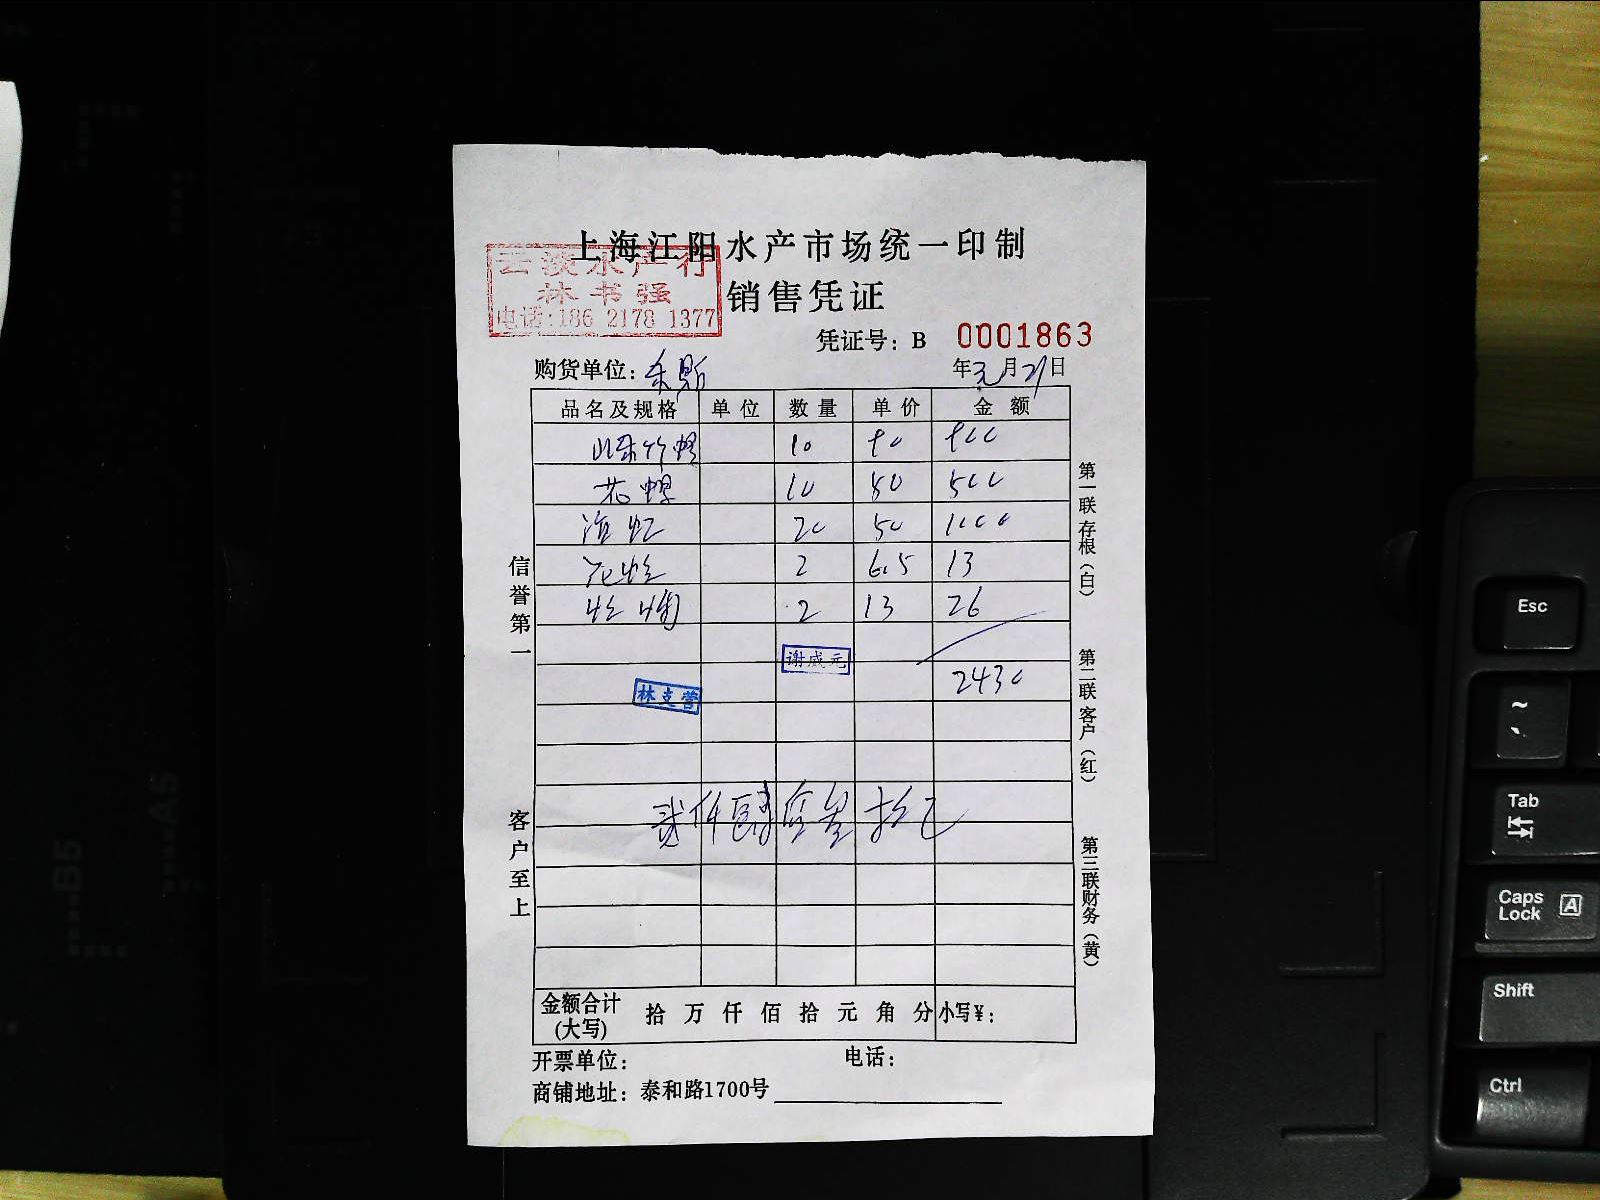 上海江阳水产市场统一印制
云淡水产行
林书强
电话:186 2178 1377
销售凭证
凭证号：B 0001863
购货单位：
年 月 21 日
品名及规格 单位 数量 单价 金额
山东竹蛏 10 90 900
花 10 50 500
20 50 1000
花蛤 2 6.5 13
2 13 26
谢成元
林支营
2430
贰仟 拾
金额合计(大写) 拾 万 仟 佰 拾 元 角 分 小写¥：
开票单位： 电话：
商铺地址：泰和路1700号
信誉第一
客户至上
第一联 存根（白）
第二联 客户（红）
第三联财务（黄）
Esc
~
`
Tab
Caps Lock A
Shift
Ctrl
A5
B5